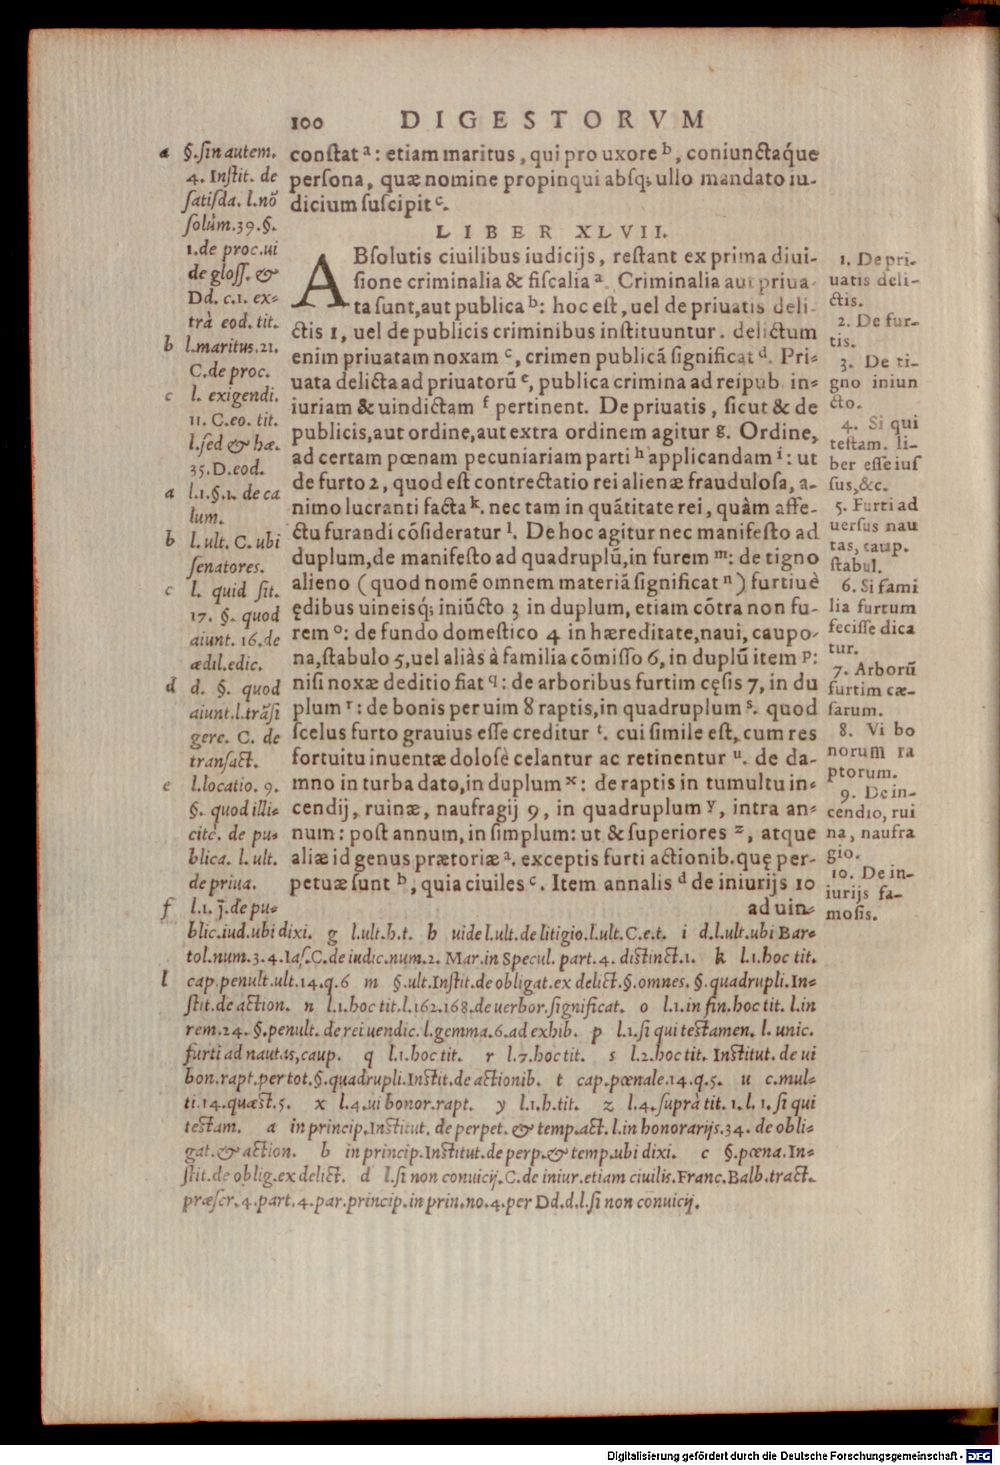 100 DIGESTORVM
conſtat a : etiam maritus, qui pro uxore b, coniunctaq́ue
perſona, quæ nomine propinqui abſq; ullo mandato iu-
dicium ſuſcipit c.
LIBER XLVII.
ABſolutis ciuilibus iudicijs, reſtant ex prima diui-
ſione criminalia & fiſcalia a. Criminalia aut priua-
ta ſunt, aut publica b: hoc eſt, uel de priuatis deli-
ctis 1, uel de publicis criminibus inſtituuntur. delictum
enim priuatam noxam c, crimen publicā ſignificat d. Pri-
uata delicta ad priuatorū e, publica crimina ad reipub. in-
iuriam & uindictam f pertinent. De priuatis, ſicut & de
publicis, aut ordine, aut extra ordinem agitur g. Ordine,
ad certam pœnam pecuniariam parti h applicandam i: ut
de furto 2, quod eſt contrectatio rei alienæ frauduloſa, a-
nimo lucranti facta k. nec tam in quātitate rei, quàm affe-
ctu furandi cōſideratur l. De hoc agitur nec manifeſto ad
duplum, de manifeſto ad quadruplū, in furem m: de tigno
alieno (quod nomē omnem materiā ſignificat n) furtiuè
ędibus uineisq́; iniūcto 3 in duplum, etiam cōtra non fu-
rem o: de fundo domeſtico 4 in hæreditate, naui, caupo-
na, ſtabulo 5, uel aliàs à familia cōmiſſo 6, in duplū item p:
niſi noxæ deditio fiat q: de arboribus furtim cęſis 7, in du
plum r: de bonis per uim 8 raptis, in quadruplum s. quod
ſcelus furto grauius eſſe creditur t. cui ſimile eſt, cum res
fortuitu inuentæ doloſè celantur ac retinentur u. de da-
mno in turba dato, in duplum x: de raptis in tumultu in-
cendij, ruinæ, naufragij 9, in quadruplum y, intra an-
num: poſt annum, in ſimplum: ut & ſuperiores z, atque
aliæ id genus prætoriæ a. exceptis furti actionib. quę per-
petuæ ſunt b, quia ciuiles c. Item annalis d de iniurijs 10
ad uin-
a §. ſin autem.
4. Inſtit. de
ſatiſda. l. nō
ſolùm. 39. §.
1. de proc. ui
de gloſſ. &
Dd. c. 1. ex-
trà eod. tit.
b l. maritus. 21.
C. de proc.
c l. exigendi.
11. C. eo. tit.
l. ſed & hæ.
35. D. eod.
a l. 1. §. 1. de ca
lum.
b l. ult. C. ubi
ſenatores.
c l. quid ſit.
17. §. quod
aiunt. 16. de
ædil. edic.
d d. §. quod
aiunt. l. trāſi
gere. C. de
tranſact.
e l. locatio. 9.
§. quod illi-
citè. de pu-
blica. l. ult.
de priua.
f l. 1. j̄. de pu-
blic. iud. ubi dixi. g l. ult. h. t. h uide l. ult. de litigio. l. ult. C. e. t. i d. l. ult. ubi Bar-
tol. num. 3. 4. Iaſ. C. de iudic. num. 2. Mar. in Specul. part. 4. diſtinct. 1. k l. 1. hoc tit.
l cap. penult. ult. 14. q. 6 m §. ult. Inſtit. de obligat. ex delict. §. omnes. §. quadrupli. In-
ſtit. de action. n l. 1. hoc tit. l. 162. 168. de uerbor. ſignificat. o l. 1. in fin. hoc tit. l. in
rem. 24. §. penult. de rei uendic. l. gemma. 6. ad exhib. p l. 1. ſi qui teſtamen. l. unic.
furti ad nautas, caup. q l. 1. hoc tit. r l. 7. hoc tit. s l. 2. hoc tit. Inſtitut. de ui
bon. rapt. per tot. §. quadrupli. Inſtit. de actionib. t cap. pœnale. 14. q. 5. u c. mul-
ti. 14. quæſt. 5. x l. 4. ui bonor. rapt. y l. 1. h. tit. z l. 4. ſuprà tit. 1. l. 1. ſi qui
teſtam. a in princip. Inſtitut. de perpet. & temp. act. l. in honorarijs. 34. de obli-
gat. & action. b in princip. Inſtitut. de perp. & temp. ubi dixi. c §. pœna. In-
ſtit. de oblig. ex delict. d l. ſi non conuicij. C. de iniur. etiam ciuilis. Franc. Balb. tract.
præſcr. 4. part. 4. par. princip. in prin. no. 4. per Dd. d. l. ſi non cōnuicij.
1. De pri-
uatis deli-
ctis.
2. De fur-
tis.
3. De ti-
gno iniun
cto.
4. Si qui
teſtam. li-
ber eſſe iuſ
ſus, &c.
5. Furti ad
uerſus nau
tas, caup.
ſtabul.
6. Si fami
lia furtum
feciſſe dica
tur.
7. Arborū
furtim cæ-
ſarum.
8. Vi bo
norum ra
ptorum.
9. De in-
cendio, rui
na, naufra
gio.
10. De in-
iurijs fa-
moſis.
Digitalisierung gefördert durch die Deutsche Forschungsgemeinschaft - DFG